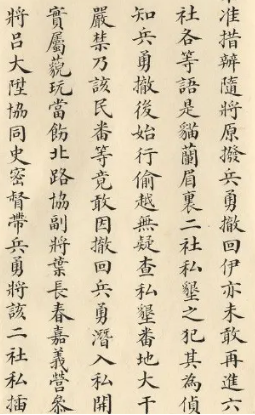 准措辦隨將原撥兵勇撤回伊亦未敢再進六
社各等語是貓蘭眉裏二社私墾之犯其為偵
知兵勇撤後始行偷越無疑查私墾番地大干
嚴禁乃該民番等竟敢因撤回兵勇潛入私開
實屬藐玩當飭北路協副將葉長春嘉義營參
將呂大陞協同史密督帶兵勇將該二社私插